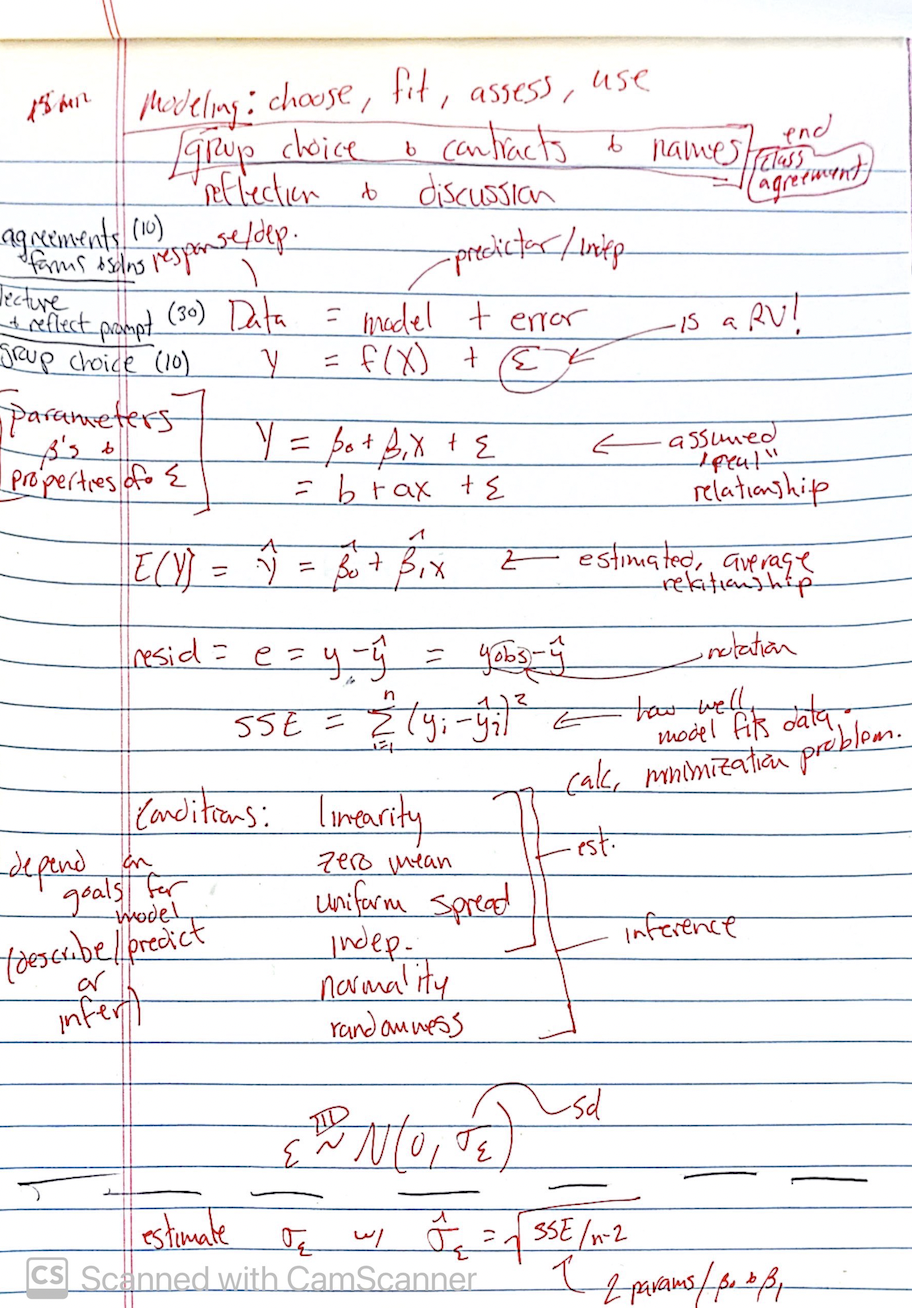 18 min
Modeling: choose, fit, assess, use
group choice & contracts & names
end
class
agreement
reflection & discussion
agreements (10)
& forms & solns
response/dep.
predictor/indep
lecture
+ reflect prompt (30)
Data = model + error
is a RV!
group choice (10)
Y = f(X) + ε
parameters
β's &
properties of ε
Y = β₀ + β₁X + ε
= b + ax + ε
← assumed
"real"
relationship
E(Y) = Ŷ = β̂₀ + β̂₁x
← estimated, average
relationship
resid = e = y - ŷ = yobs - ŷ
notation
SSE = Σⁿᵢ₌₁ (yᵢ - ŷᵢ)²
← how well
model fits data.
calc, minimization problem.
Conditions: linearity
zero mean
uniform spread
indep.
normality
randomness
est.
inference
depend on
goals for
model
(describe/predict
or
infer)
ε ~ᴵᴵᴰ N(0, σ_ε)
sd
estimate σ_ε w/ σ̂_ε = √SSE/n-2
2 params/β₀ & β₁
CS Scanned with CamScanner